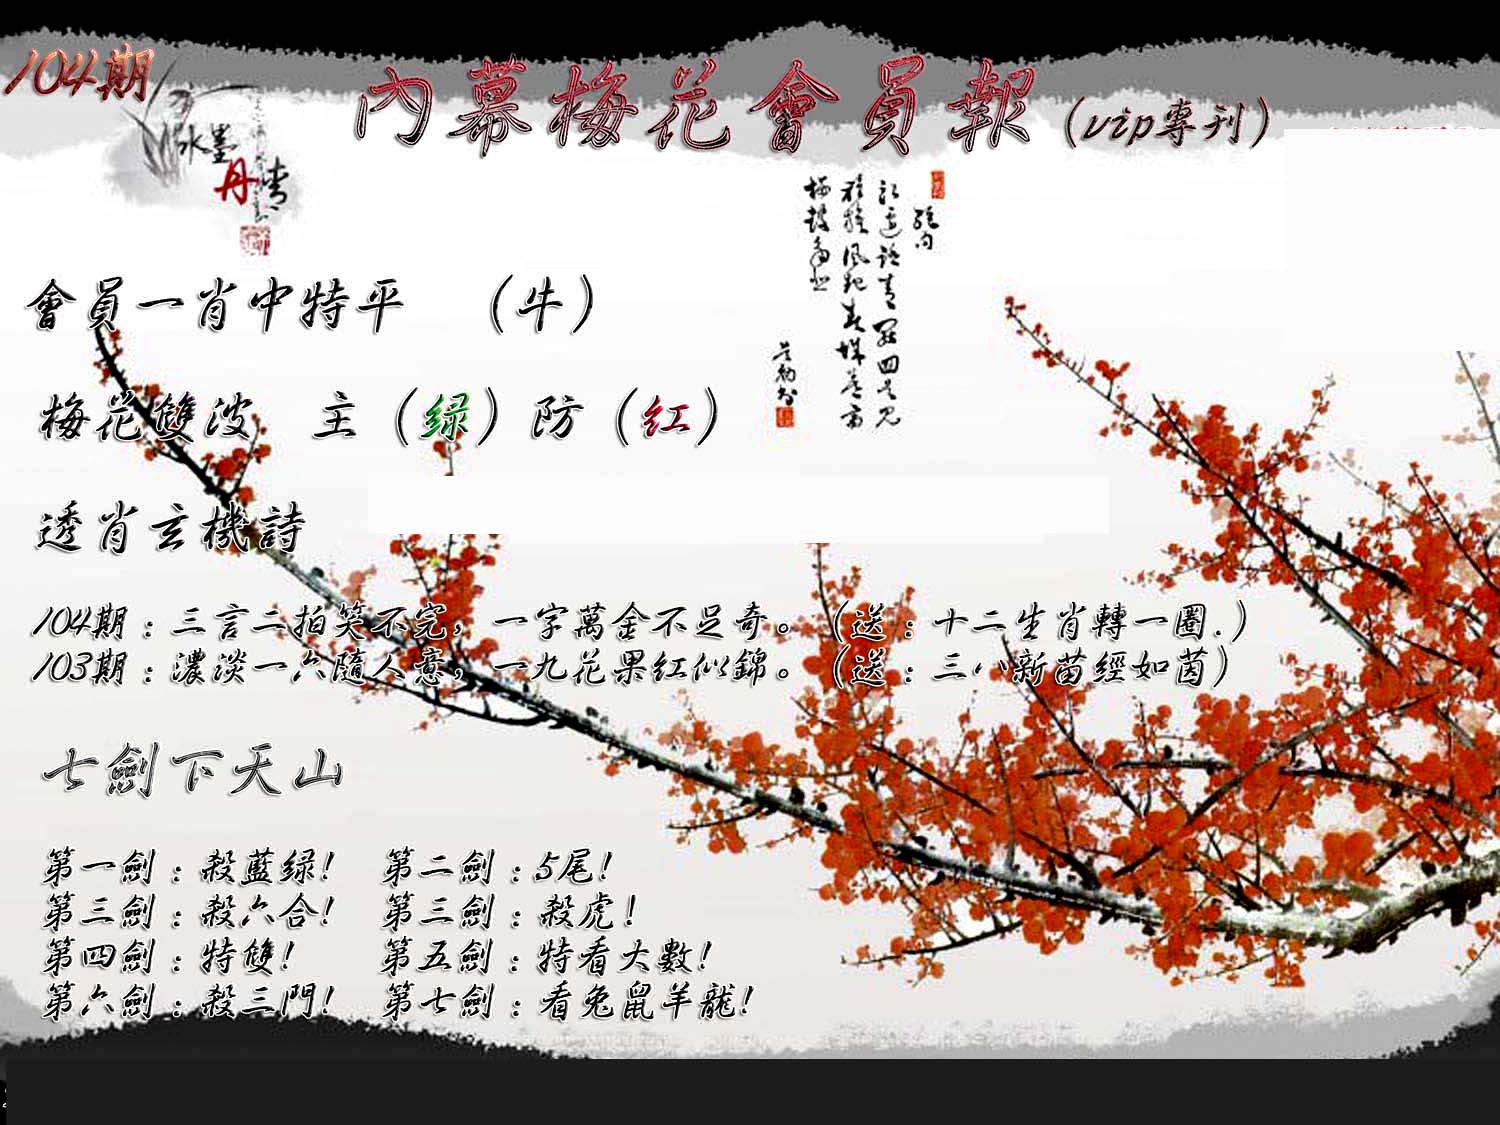 104期
內幕梅花會員報(vip專刊)
水墨
丹情
絕句
會員一肖中特平 (牛)
梅花雙波 主(绿)防(红)
透肖玄機詩
104期:三言二拍笑不完,一字萬金不足奇。(送:十二生肖轉一圈.)
103期:濃淡一六隨人意,一九花果紅似錦。(送:三八新苗經如茵)
七劍下天山
第一劍:殺藍绿! 第二劍:5尾!
第三劍:殺六合! 第三劍:殺虎!
第四劍:特雙! 第五劍:特看大數!
第六劍:殺三門! 第七劍:看兔鼠羊龍!